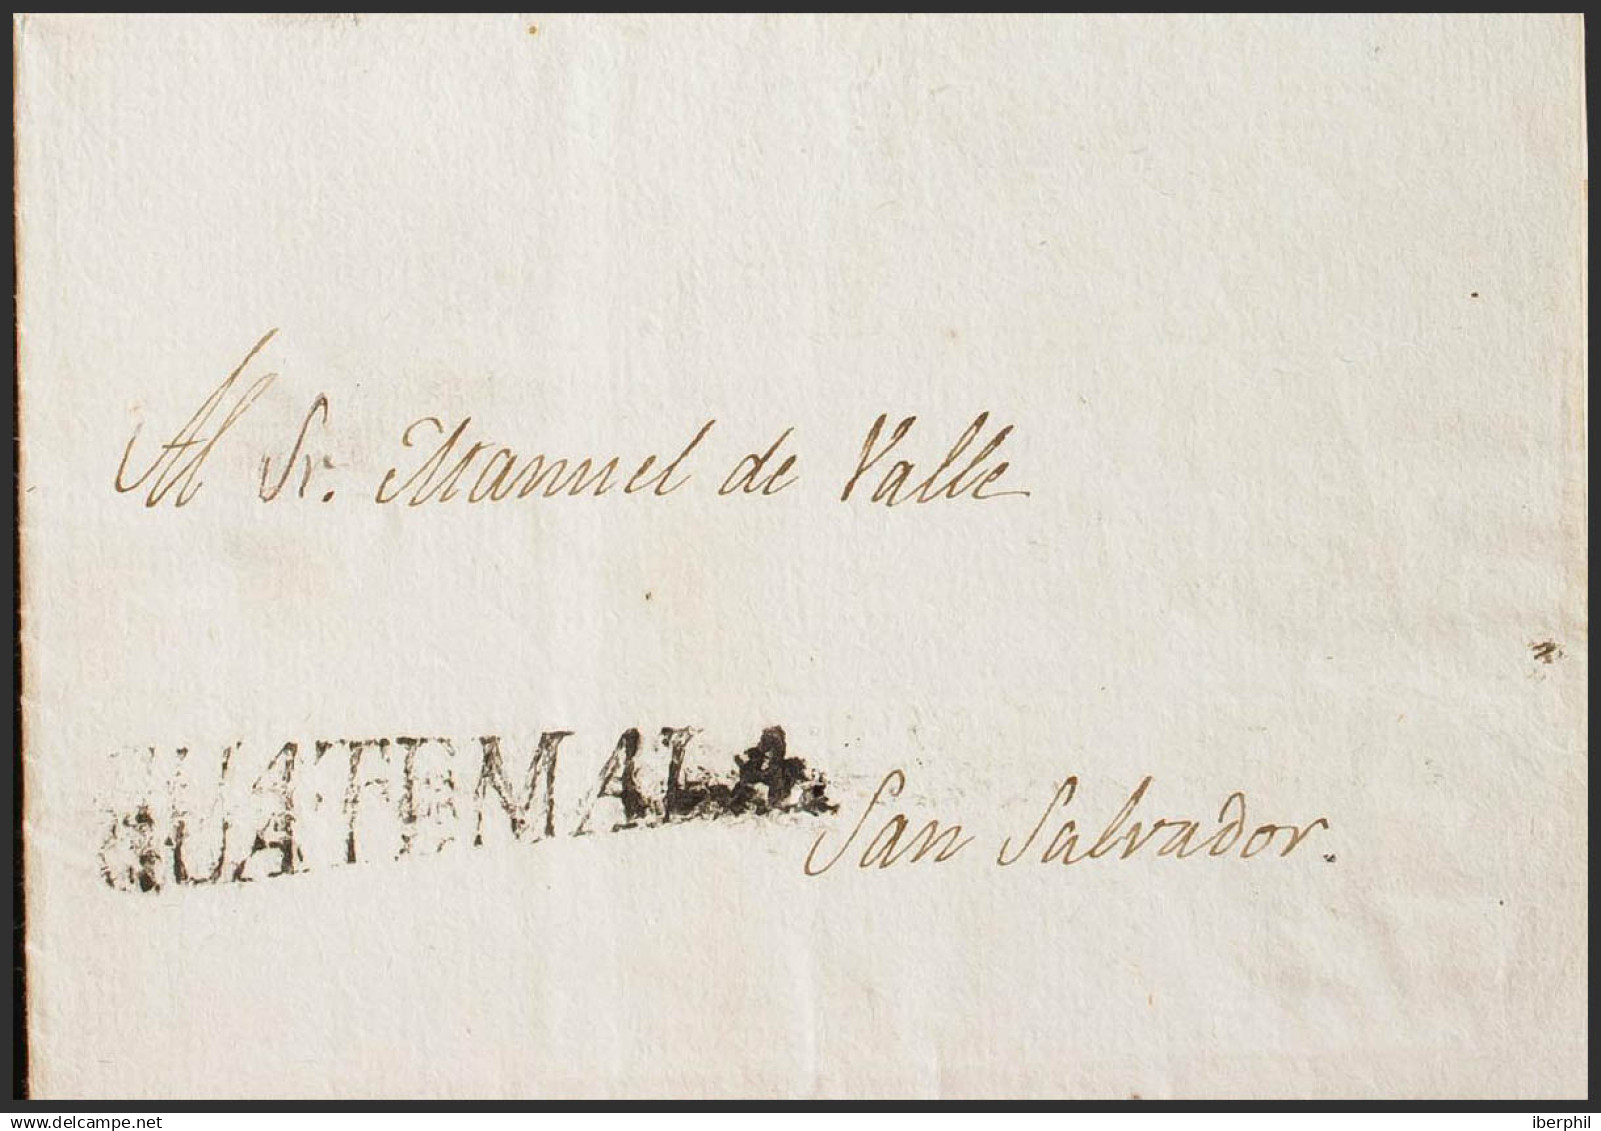 Al Sr. Manuel de Valle
GUATEMALA
San Salvador.
delcampe.net
iberphil